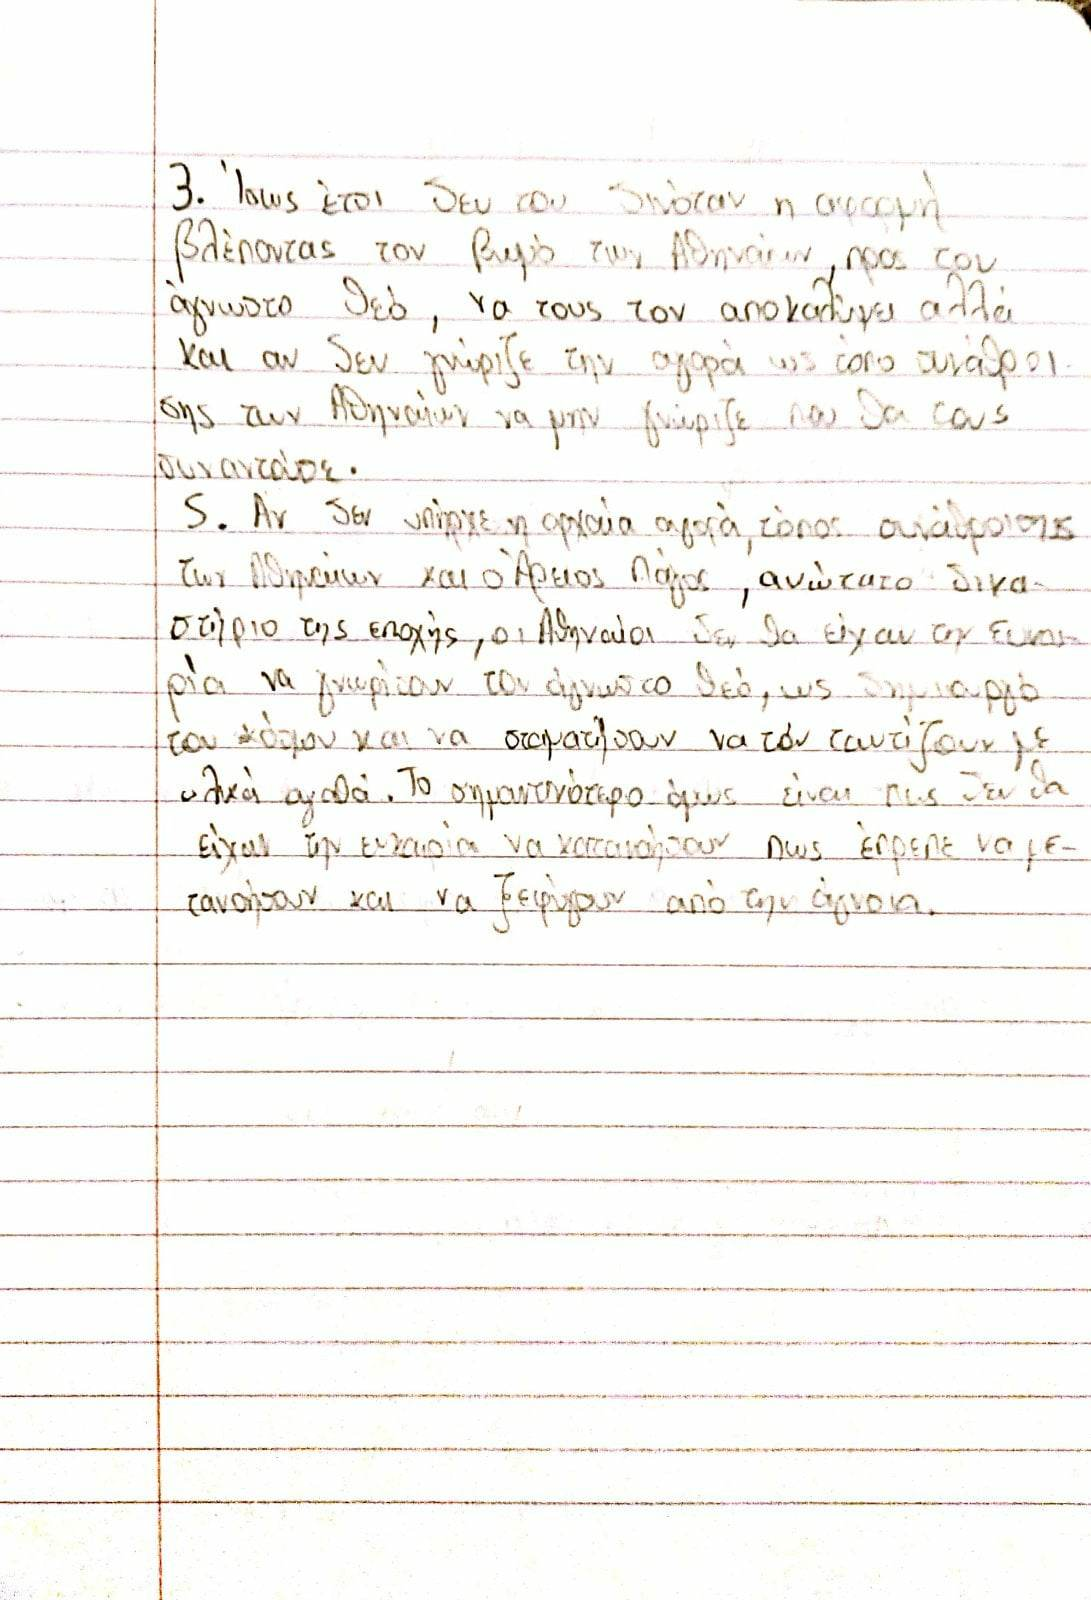 3. Ίσως έτσι δεν του δινόταν η αφορμή
βλέποντας τον βωμό των Αθηναίων, προς τον
άγνωστο θεό, να τους τον αποκαλύψει αλλά
και αν δεν γνώριζε την αγορά ως τόπο συνάθροι-
σης των Αθηναίων να μην γνώριζε που θα τους
συναντούσε.
5. Αν δεν υπήρχε η αρχαία αγορά, τόπος συνάθροισης
των Αθηναίων και ο Άρειος Πάγος, ανώτατο δικα-
στήριο της εποχής, οι Αθηναίοι δεν θα είχαν την ευκαι-
ρία να γνωρίσουν τον άγνωστο θεό, ως δημιουργό
του κόσμου και να σταματήσουν να τόν ταυτίζουν με
υλικά αγαθά. Το σημαντικότερο όμως είναι πως δεν θα
είχαν την ευκαιρία να κατανοήσουν πως έπρεπε να με-
τανοήσουν και να ξεφύγουν από την άγνοια.